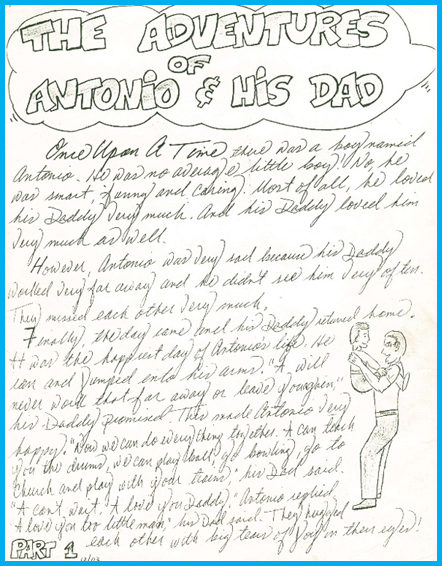 THE ADVENTURES
OF
ANTONIO & HIS DAD
Once Upon A Time, there was a boy named
Antonio. He was no average little boy. No, he
was smart, funny and caring. Most of all, he loved
his Daddy very much. And his Daddy loved him
very much as well.
However, Antonio was very sad because his Daddy
worked very far away and he didn't see him very often.
They missed each other very much.
Finally, the day came and his Daddy returned home.
It was the happiest day of Antonio's life. He
ran and jumped into his arms. "I will
never work that far away or leave you again,"
his Daddy promised. This made Antonio very
happy. "Now we can do everything together. I can teach
you the drums, we can play ball, go bowling, go to
church and play with your trains," his Dad said.
"I can't wait. I love you Daddy," Antonio replied.
"I love you too little man," his Dad said. They hugged
each other with big tears of joy in their eyes!
PART 1
12/03